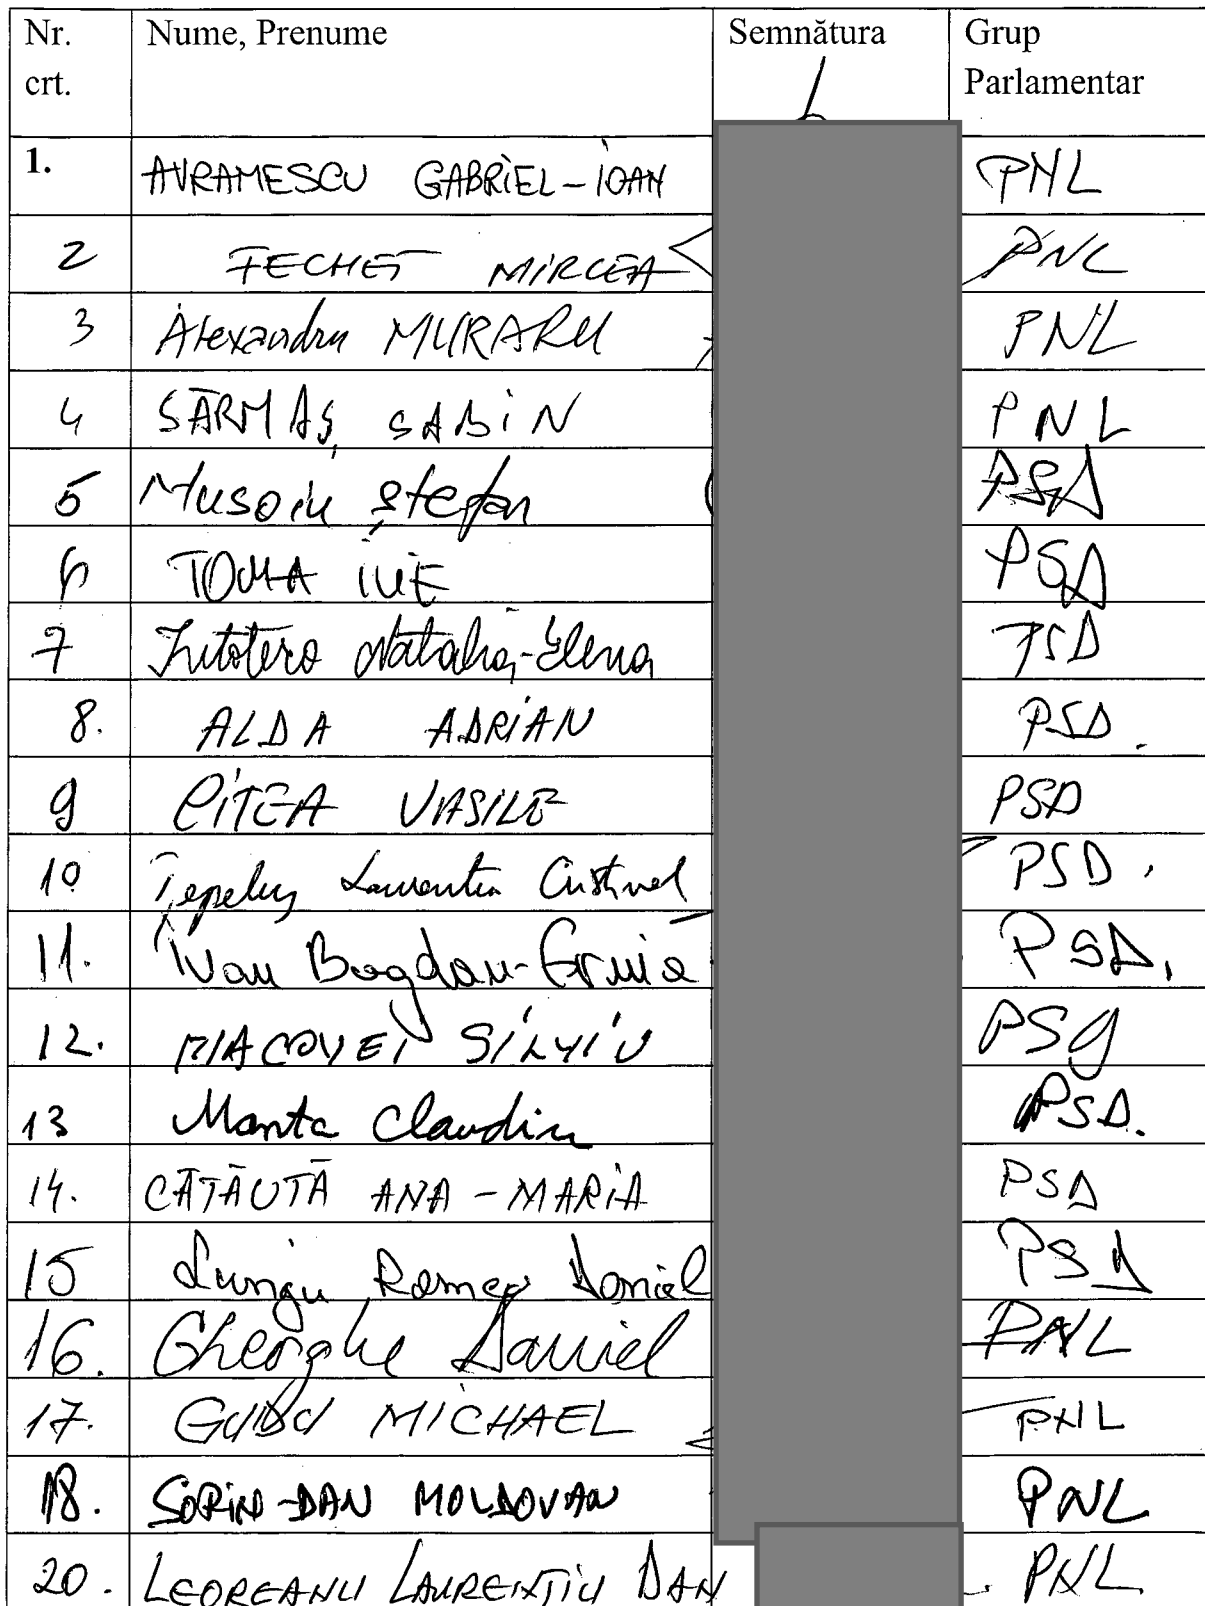 Nr. crt. Nume, Prenume Semnătura Grup Parlamentar
1. AVRAMESCU GABRIEL-IOAN PNL
2 FECHET MIRCEA PNL
3 Alexandru MURARU PNL
4 SĂRMAȘ SABIN PNL
5 Musoiu Ștefan PSD
6 TOMA ILIE PSD
7 Intotero Natalia-Elena PSD
8. ALDA ADRIAN PSD.
9 CÎTEA VASILE PSD
10 Țepeluș Laurențiu Cristinel PSD.
11. Ivan Bogdan-Gruia PSD.
12. MACOVEI SILVIU PSD
13 Manta Claudiu PSD.
14. CĂTĂUȚĂ ANA-MARIA PSD
15 Lungu Romeo Daniel PSD
16. Gheorghe Daniel PNL
17. GUDU MICHAEL PNL
18. SORIN-DAN MOLDOVAN PNL
20. LEOREANU LAURENȚIU DAN PNL